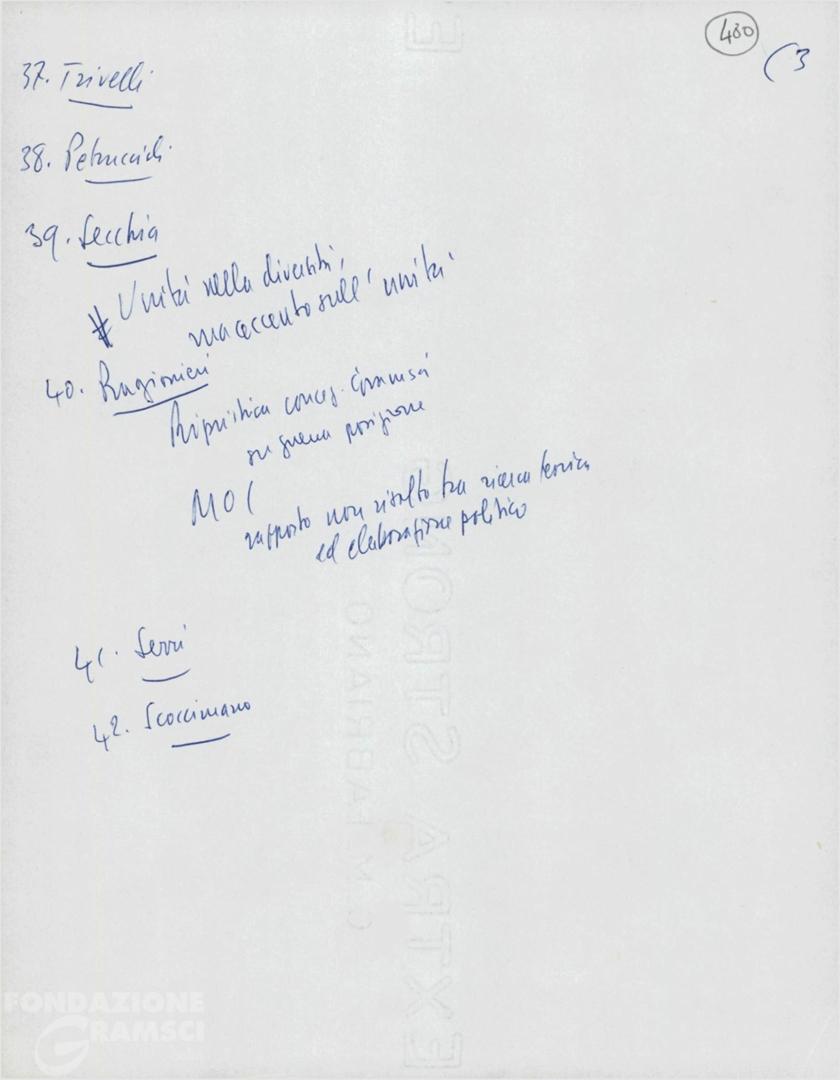 400
(3
37. Trivelli
38. Petruccioli
39. Secchia
# Unità nella diversità,
ma accento sull'unità
40. Ragionieri
Ripristica conc. Gramsci
su guerra posizione
MO(
rapporto non risolto tra ricerca teorica
ed elaborazione politica
41. Serri
42. Scoccimarro
C. M. FABRIANO
EXTRA STRONG
FONDAZIONE
GRAMSCI